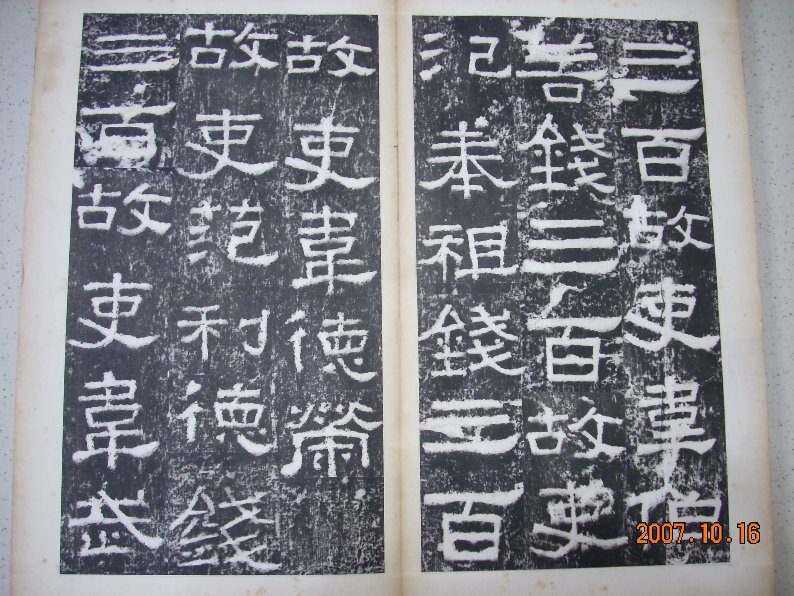 三百故吏韋伯
善錢三百故吏
氾奉祖錢三百
故吏韋德榮
故吏范利德錢
三百故吏韋武
2007.10.16